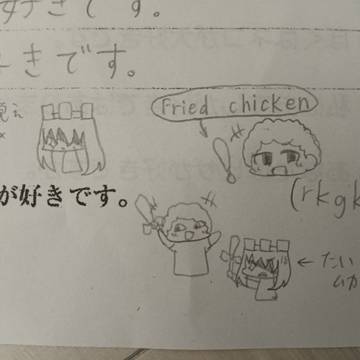 好きです。
きです。
覚え
Fried chicken
が好きです。
(rkgk
←たい